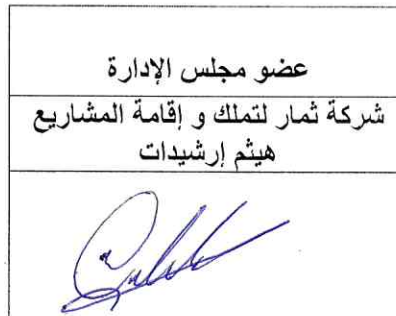 عضو مجلس الإدارة
شركة ثمار لتملك و إقامة المشاريع
هيثم إرشيدات